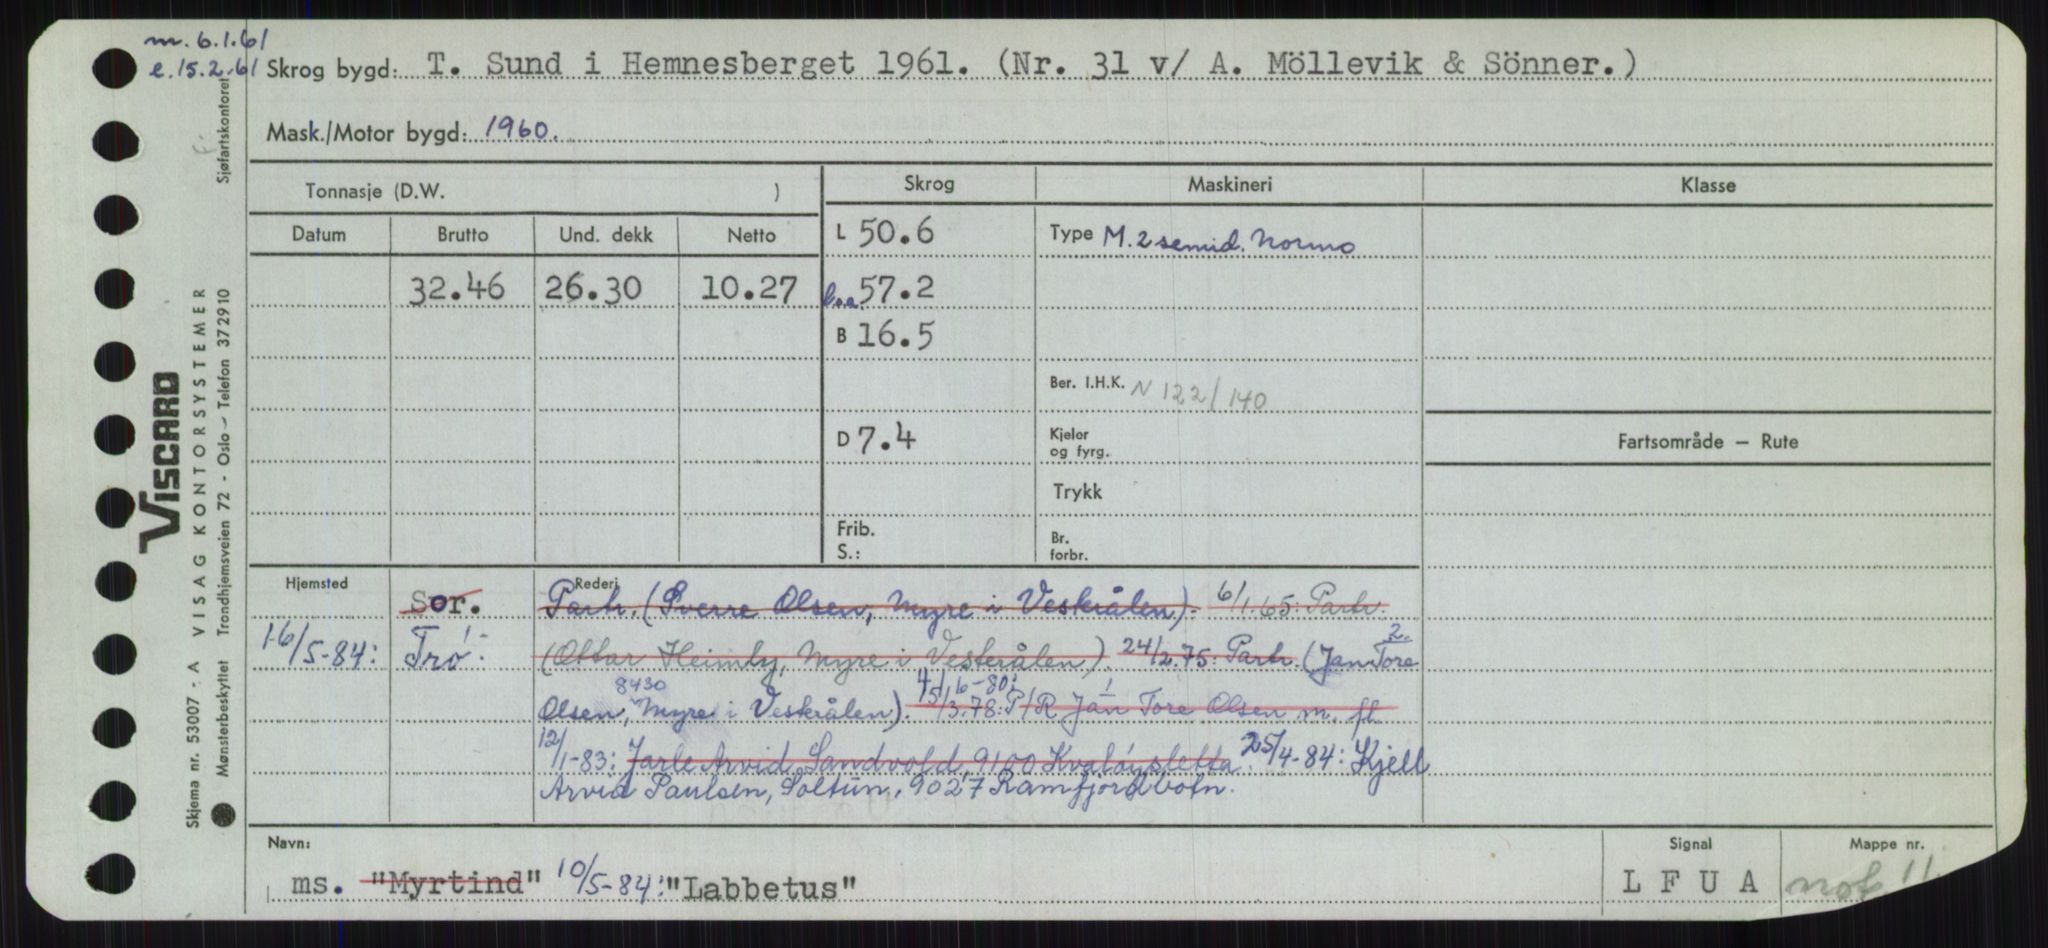 m. 6.1.61
e. 15.2.61 Skrog bygd: T. Sund i Hemnesberget 1961. (Nr. 31 v/ A. Möllevik & Sönner.)
Mask./Motor bygd: 1960.
Sjøfartskontoret
Tonnasje (D.W. ) Skrog Maskineri Klasse
Datum Brutto Und. dekk Netto L 50.6 Type M. 2 semid. Normo
32.46 26.30 10.27 l.o.a. 57.2
B 16.5
Ber. I.H.K. N 122/140
D 7.4 Kjeler og fyrg. Fartsområde – Rute
Trykk
Frib. S.: Br. forbr.
VISCARD
VISAG KONTORSYSTEMER
Skjema nr. 53007 - A
Mønsterbeskyttet Trondhjemsveien 72 - Oslo - Telefon 372910
Hjemsted Sor. Rederi Partr. (Sverre Olsen, Myre i Vesterålen). 6/1.65: Partr.
16/5-84: Trö. (Ottar Heimly, Myre i Vesterålen). 24/2.75: Partr. (Jan Tore
Olsen, 8430 Myre i Vesterålen). 3.78: P/R Jan Tore Olsen m. fl.
12/1-83: Jarle Arvid Sandvold, 9100 Kvaløysletta. 25/4-84: Kjell
Arvid Paulsen, Soltun, 9027 Ramfjordbotn.
Navn: Signal Mappe nr.
ms. "Myrtind" 10/5-84: "Labbetus" L F U A not 11